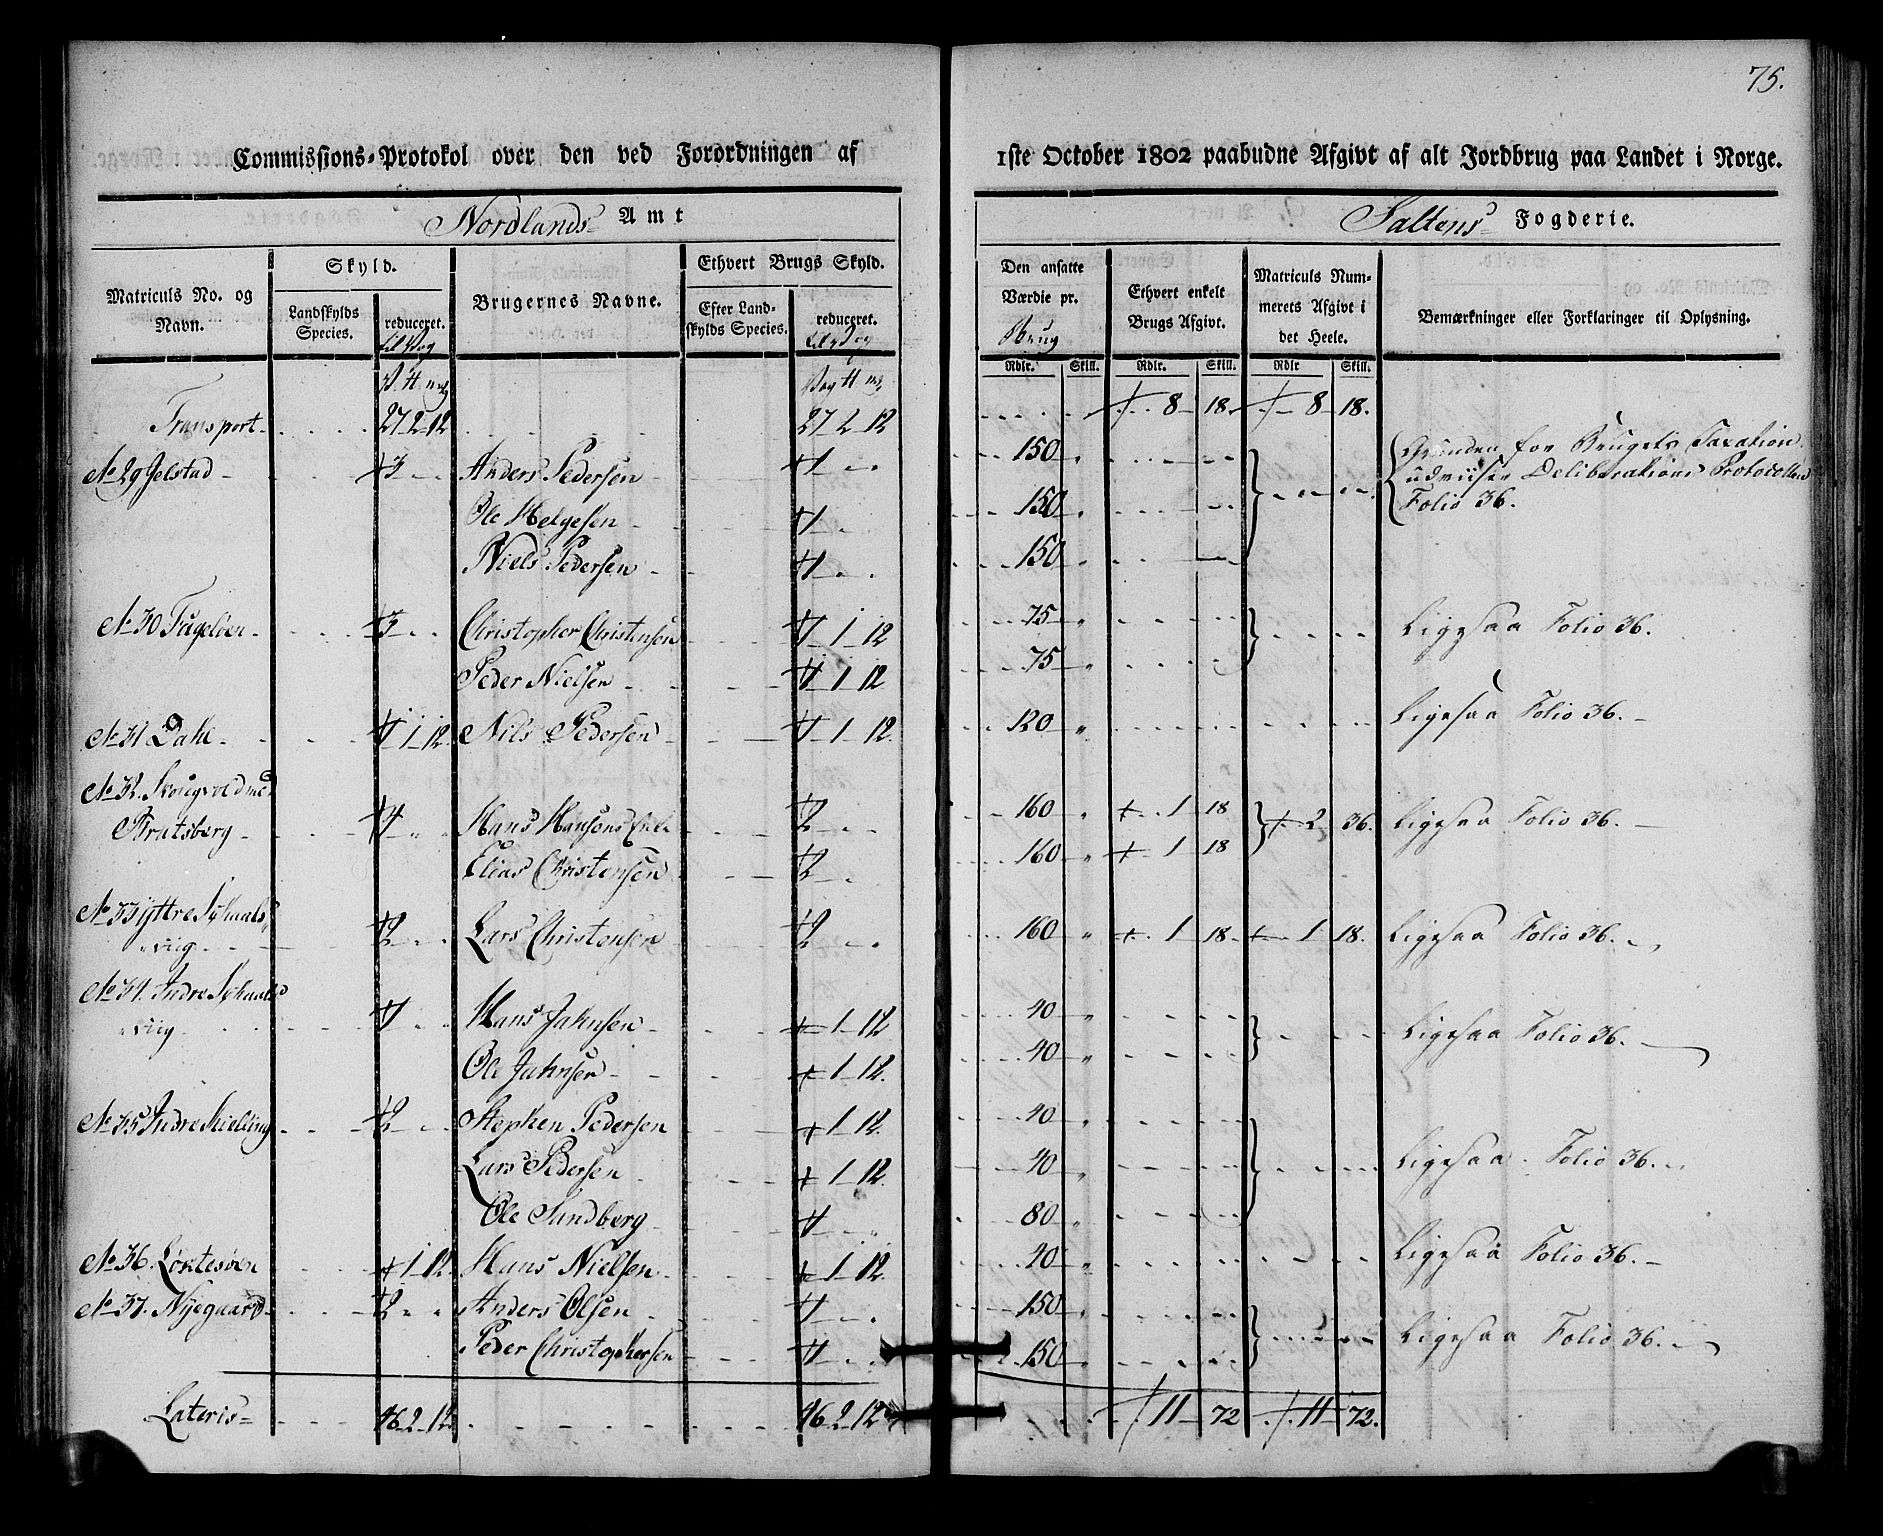 75.
Commissions-Protokol over den ved Forordningen af 1ste October 1802 paabudne Afgivt af alt Jordbrug paa Landet i Norge.
Nordlands Amt Saltens Fogderie.
Matriculs No. og Navn. Skyld. Landskylds Species. reduceret. til Vog Brugernes Navne. Ethvert Brugs Skyld. Efter Landskylds Species. reduceret. til Vog Den ansatte Værdie pr. Brug Ethvert enkelt Brugs Afgivt. Matriculs Nummerets Afgivt i det Heele. Bemærkninger eller Forklaringer til Oplysning.
Rdlr. Skill. Rdlr. Skill. Rdlr Skill.
Transport 27 2 12 27 2 12 8 18 8 18.
No 29 Jelstad 3 Anders Pedersen 1 150 Grunden for Brugets Taxation
Ole Helgesen 1 150 udviser Deliberations Protocollen
Folio 36.
Niels Pedersen 1 150
No 30 Fugeløen 3 Christopher Christensen 1 1 12 75 Ligesaa Folio 36.
Peder Nielsen 1 1 12 75
No 31 Dahl 1 1 12 Nils Pedersen 1 1 12 120 Ligesaa Folio 36.
No 32. Skougvold med
Bratsberg 4 Hans Hansens Enke 2 160 1 18 2 36. Ligesaa Folio 36.
Elias Christensen 2 160 1 18
No 33 Yttre Schaals
viig 2 Lars Christensen 2 160 1 18 1 18. Ligesaa Folio 36.
No 34. Indre Schaals
viig 1 Hans Jahnsen 1 12 40 Ligesaa Folio 36.
Ole Jahnsen 1 12. 40
No 35 Indre Kielling 2 Stephen Pedersen 1 12. 40
Lars Pedersen 1 12. 40 Ligesaa Folio 36.
Ole Sandberg 1 80
No 36. Løktesøen 1 12 Hans Nielsen 1 12. 40 Ligesaa Folio 36.
No 37. Nyegaard 2 Anders Olsen 1 150
Peder Christophersen 1 150 Ligesaa Folio 36.
Lateris 46 2 12 46 2 12 11 72 11 72.